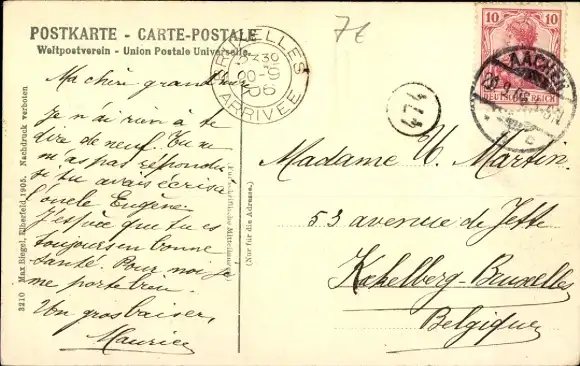 POSTKARTE - CARTE-POSTALE
Weltpostverein - Union Postale Universelle.
BRUXELLES
ARRIVÉE
06
474
10 10
DEUTSCHES REICH
AACHEN
Ma chère grand mère
Je n'ai rien à te
dire de neuf. Tu ne
m'as pas répondu
si tu avais écris à
l'oncle Eugène.
J'espère que tu es
toujours en bonne
santé. Pour moi je
me porte bien.
Un gros baiser,
Maurice
Madame U. Martin
53 avenue de Jette
Kokelberg-Bruxelles
Belgique
(Nur für die Adresse.)
3210 Max Biegel, Elberfeld, 1905. Nachdruck verboten